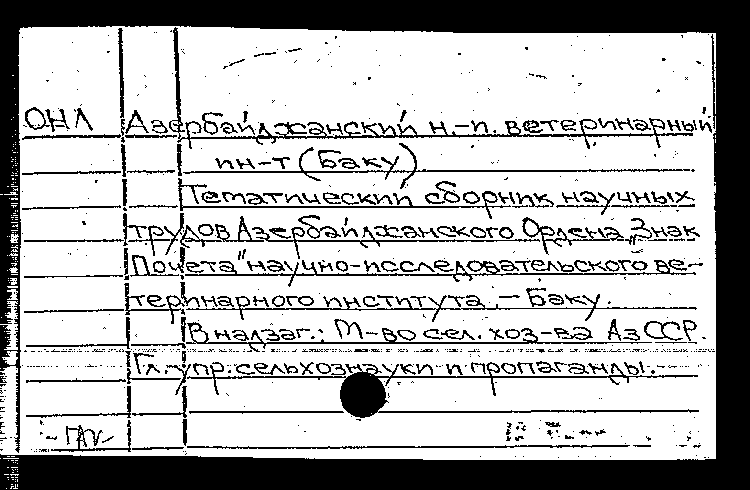 ОНЛ Азербайджанский н.-и. ветеринарный
ин-т (Баку)
Тематический сборник научных
трудов Азербайджанского Ордена „Знак
Почета" научно-исследовательского ве-
теринарного института. – Баку.
В надзаг.: М-во сел. хоз-ва АзССР.
Гл. упр. сельхознауки и пропаганды.